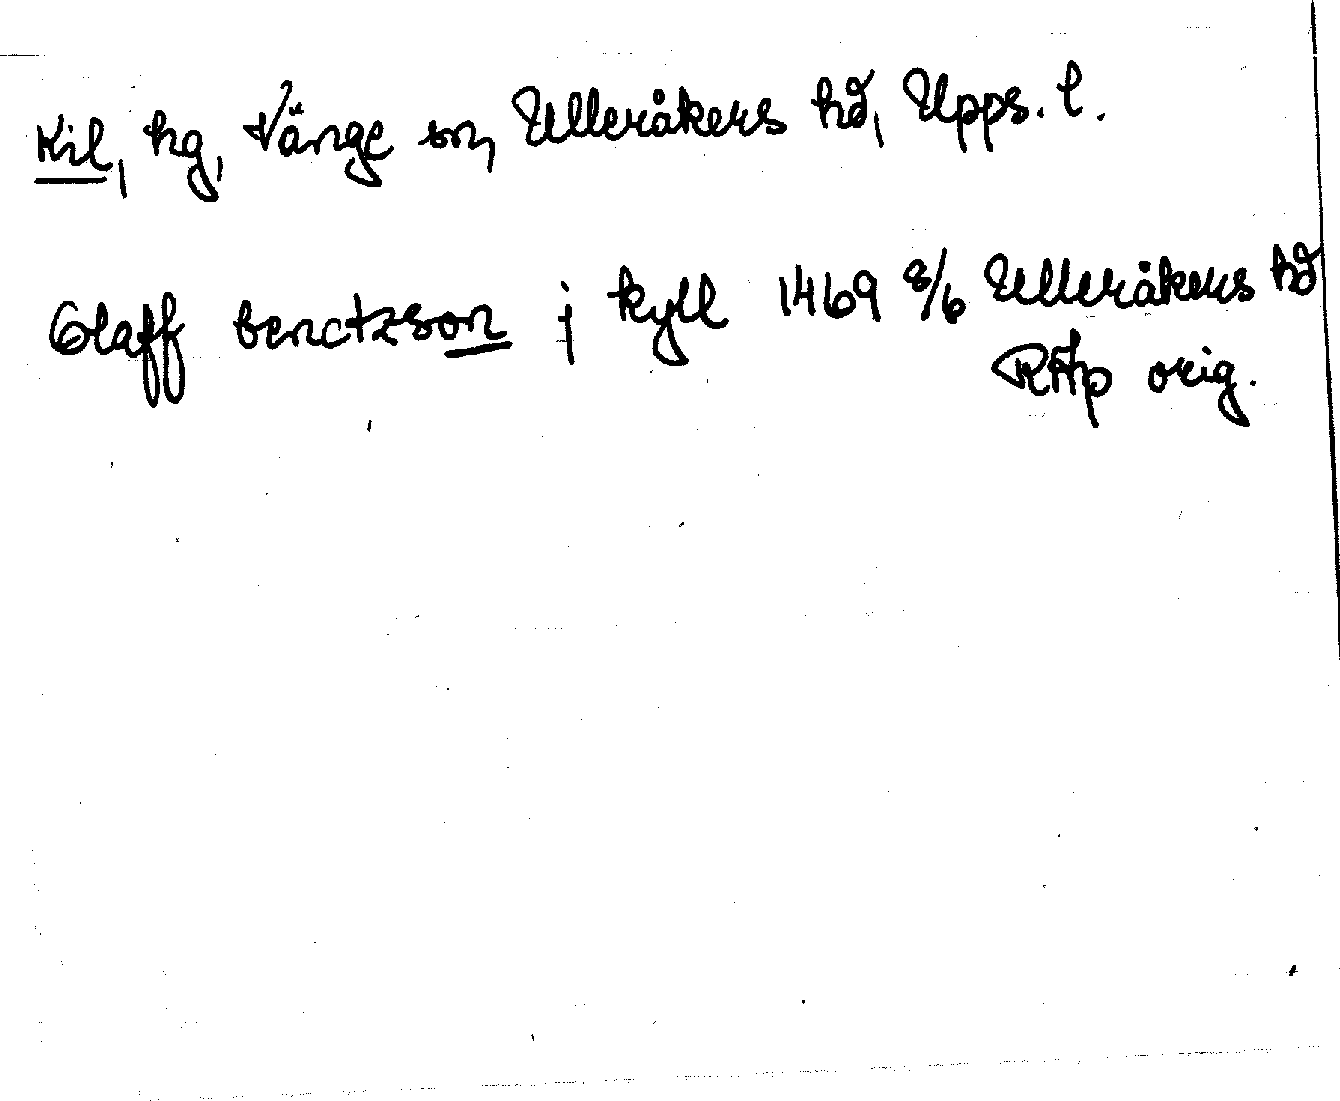 Kil, hg, Vänge sn, Ulleråkers hd, Upps. l.
Olaff benctzson j kyll 1469 8/6 Ulleråkers hd
RAp orig.